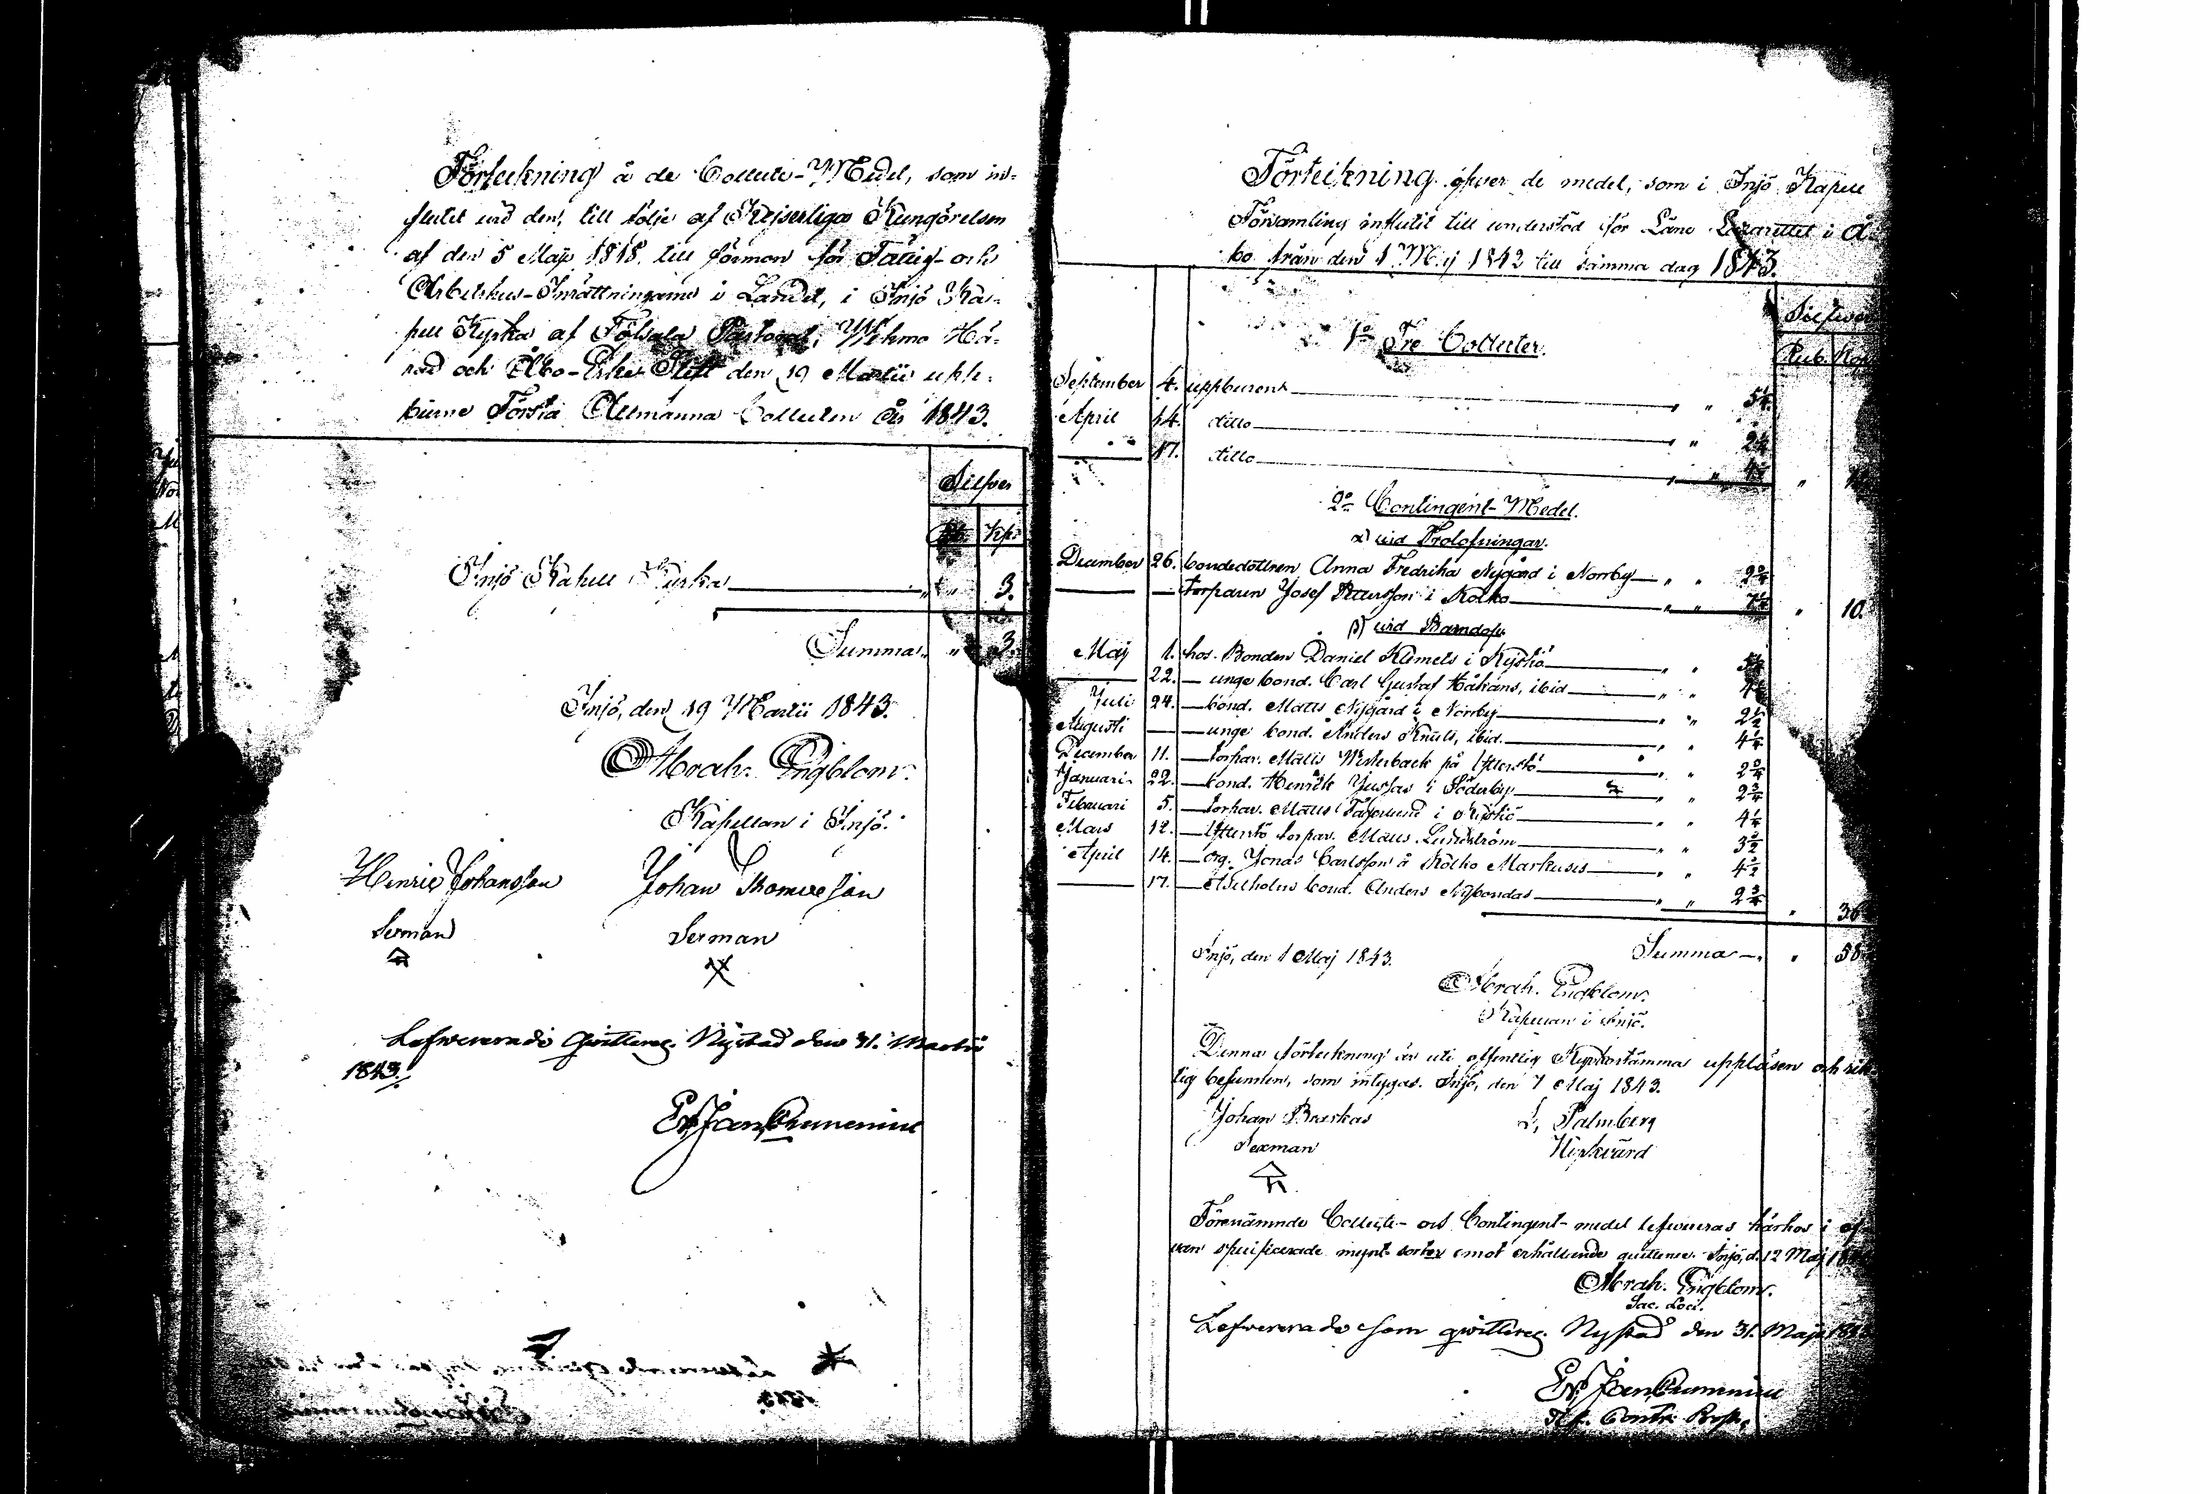 Förteckning å de Collecte-Medel, som in-
flutit vid den, till följe af Kejserliga Kungörelsen
af den 5 Maji 1818, till förmon för Fattig- och
Arbetshus-Inrättningarne i Landet, i Iniö Ka-
pell Kyrka af Töfsala Pastorat, Wehmo Hä-
rad och Åbo-Erke-Stift den 19 Martii upp-
burne Första Allmänna Collecten År 1843.
Silfver
Kp.
Iniö Kapell Kyrka " 3.
Summa " 3.
Iniö, den 19 Martii 1843.
Abrah. Engblom.
Kapellan i Iniö.
Henric Johansson Johan Thomasson
Sexman Sexman
Lefvererade qvitteras. Nystad den 31. Martii
1843.
Förteckning öfver de medel, som i Iniö Kapell
Församling influtit till understöd för Läns Lazarettet i Å-
bo från den 1 Maj 1842 till samma dag 1843.
Silfver
Rub. Kop.
1o Tre Collecter.
September 4. uppburens " " 5¼.
April 14. ditto " "
" " 17. ditto " "
2o Contingent-Medel.
α) vid Trolofningar.
December 26. bondedottren Anna Fredrika Nygård i Norrby " " 2¾
Torparen Josef Pettersson i Kolko " " 7¼ " 10.
β) vid Barndop.
Maj 1. hos Bonden Daniel Klemets i Kyskiö " "
22. — unge bond. Carl Gustaf Håkans, ibid " "
Juli 24. — bond. Matts Nygård i Norrby " " 2½
Augusti — — unge bond. Anders Knuts, ibid. " " 4¼
December 11. — torpar. Matts Westerback på Ytterstö " " 2¾
Januari 22. — bond. Henrik Jussas i Söderby " " 2¾
Februari 5. — torpar. Matts " " 4¼
Mars 12. — Ytterstö torpar. Matts Lundström " " 3½
April 14. — Jonas Carlsson å Kolko Markusis " " 4½
17. — bond. Anders Nybondas " " 2¾
" 36
Iniö, den 1 Maj 1843. Summa — " 58
Abrah. Engblom.
Kapellan i Iniö.
Denna förteckning är uti offentlig Kyrkostämma uppläsen och rik-
tig befunnen, som intygas. Iniö, den 7 Maj 1843.
Johan Braskas L. Palmberg
Sexman Kyrkvärd
Förenämnde Collecte- och Contingent-medel lefvereras härhos i of-
van specificerade mynt sorter emot erhållande qvittence. Iniö, d. 12 Maj
Abrah. Engblom.
Sac. Loci.
Lefvererade som qvitteras. Nystad den 31. Maji